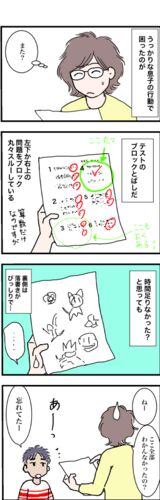 うっかりな息子の行動で
困ったのが
また？
テストの
ブロックとばしだ
左下か右上の
問題をブロック
丸々スルーしている
算数だけ
なのですが
時間足りなかった？
と思っても
裏側は
落書きが
びっしりで…
ねー
ここ全部
わかんなかったの？
あーっ
忘れてたー